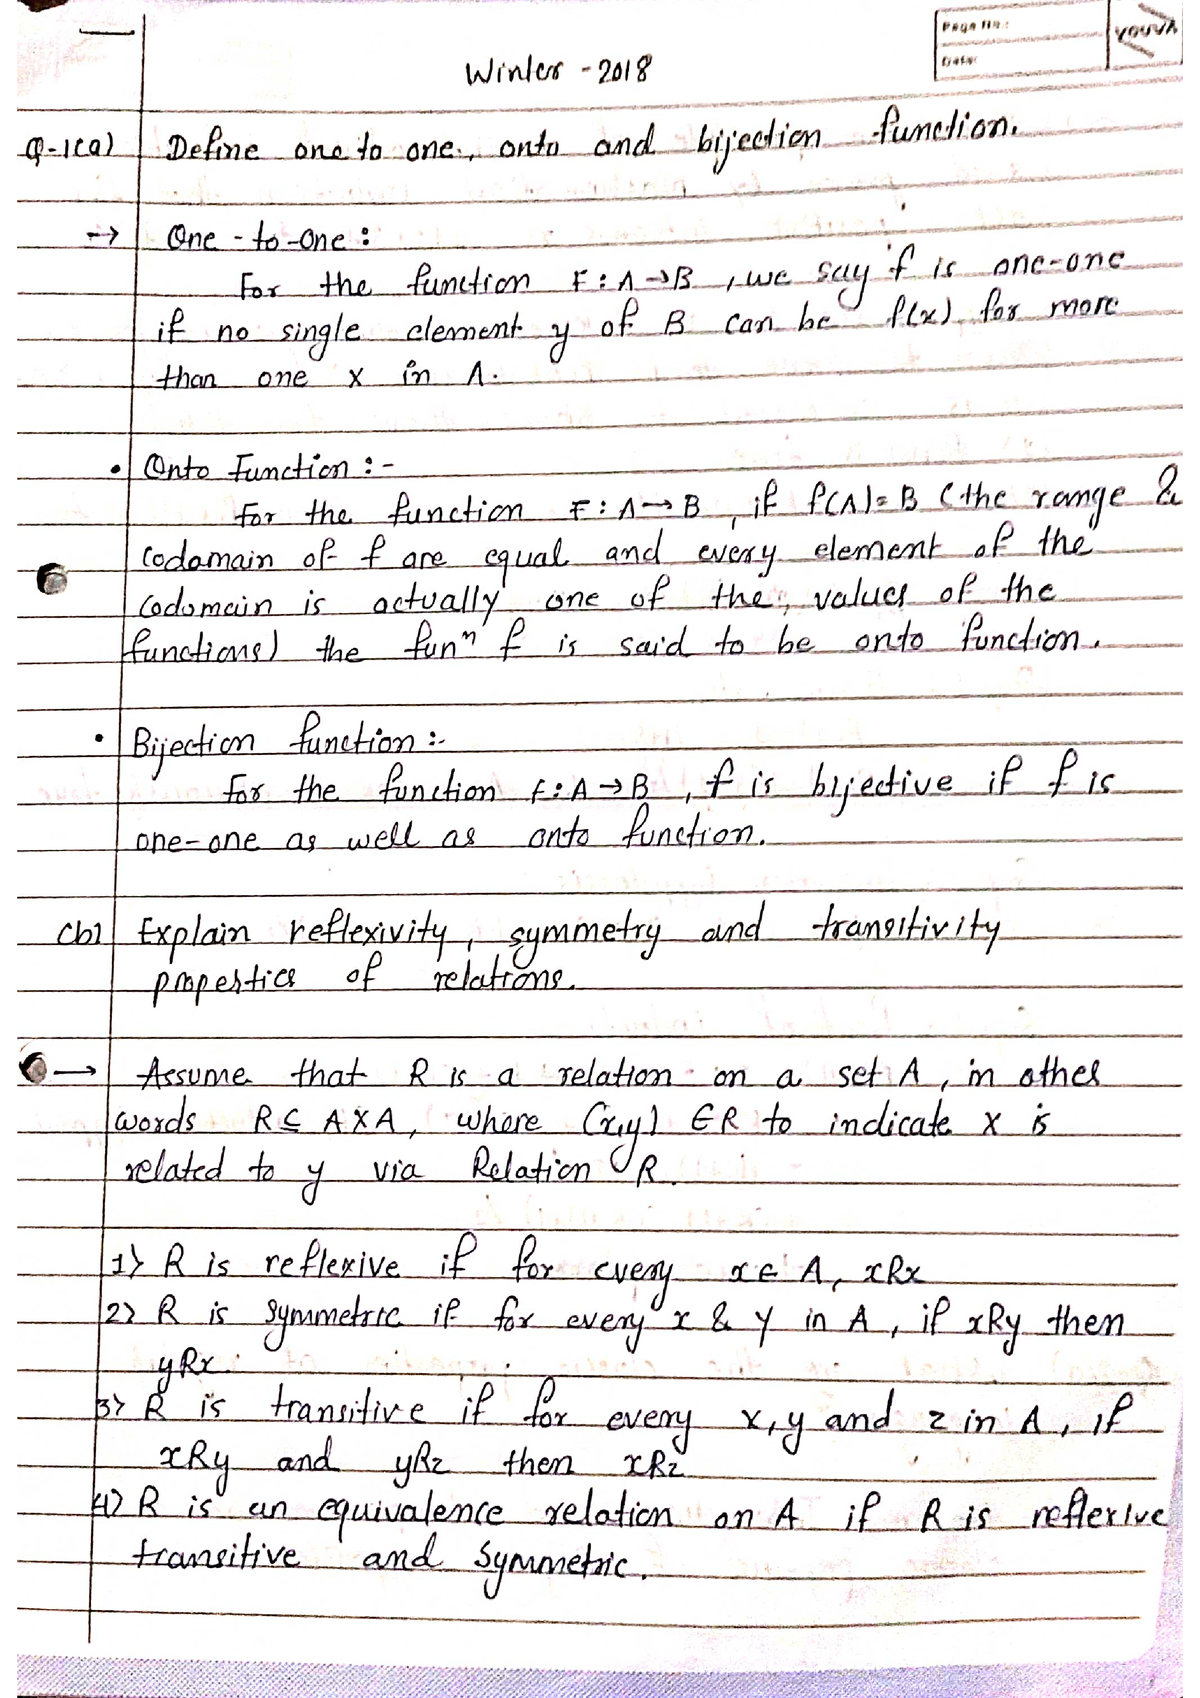 Page No.:
Date:
YOUVA
Winter - 2018
Q-1(a) Define one to one, onto and bijection function.
→ One-to-One:
For the function F:A→B, we say f is one-one
if no single element y of B can be f(x) for more
than one x in A.
• Onto Function:-
For the function F:A→B, if f(A)=B (the range &
codomain of f are equal and every element of the
codomain is actually one of the values of the
functions) the funⁿ f is said to be onto function.
• Bijection function:-
for the function F:A→B, f is bijective if f is
one-one as well as onto function.
(b) Explain reflexivity, symmetry and transitivity
properties of relations.
→ Assume that R is a relation on a set A, in other
words R⊆ A×A, where (x,y) ∈R to indicate x is
related to y via Relation R.
1) R is reflexive if for every x∈ A, xRx
2) R is symmetric if for every x & y in A, if xRy then
yRx.
3) R is transitive if for every x,y and z in A, if
xRy and yRz then xRz
4) R is an equivalence relation on A if R is reflexive
transitive and symmetric.